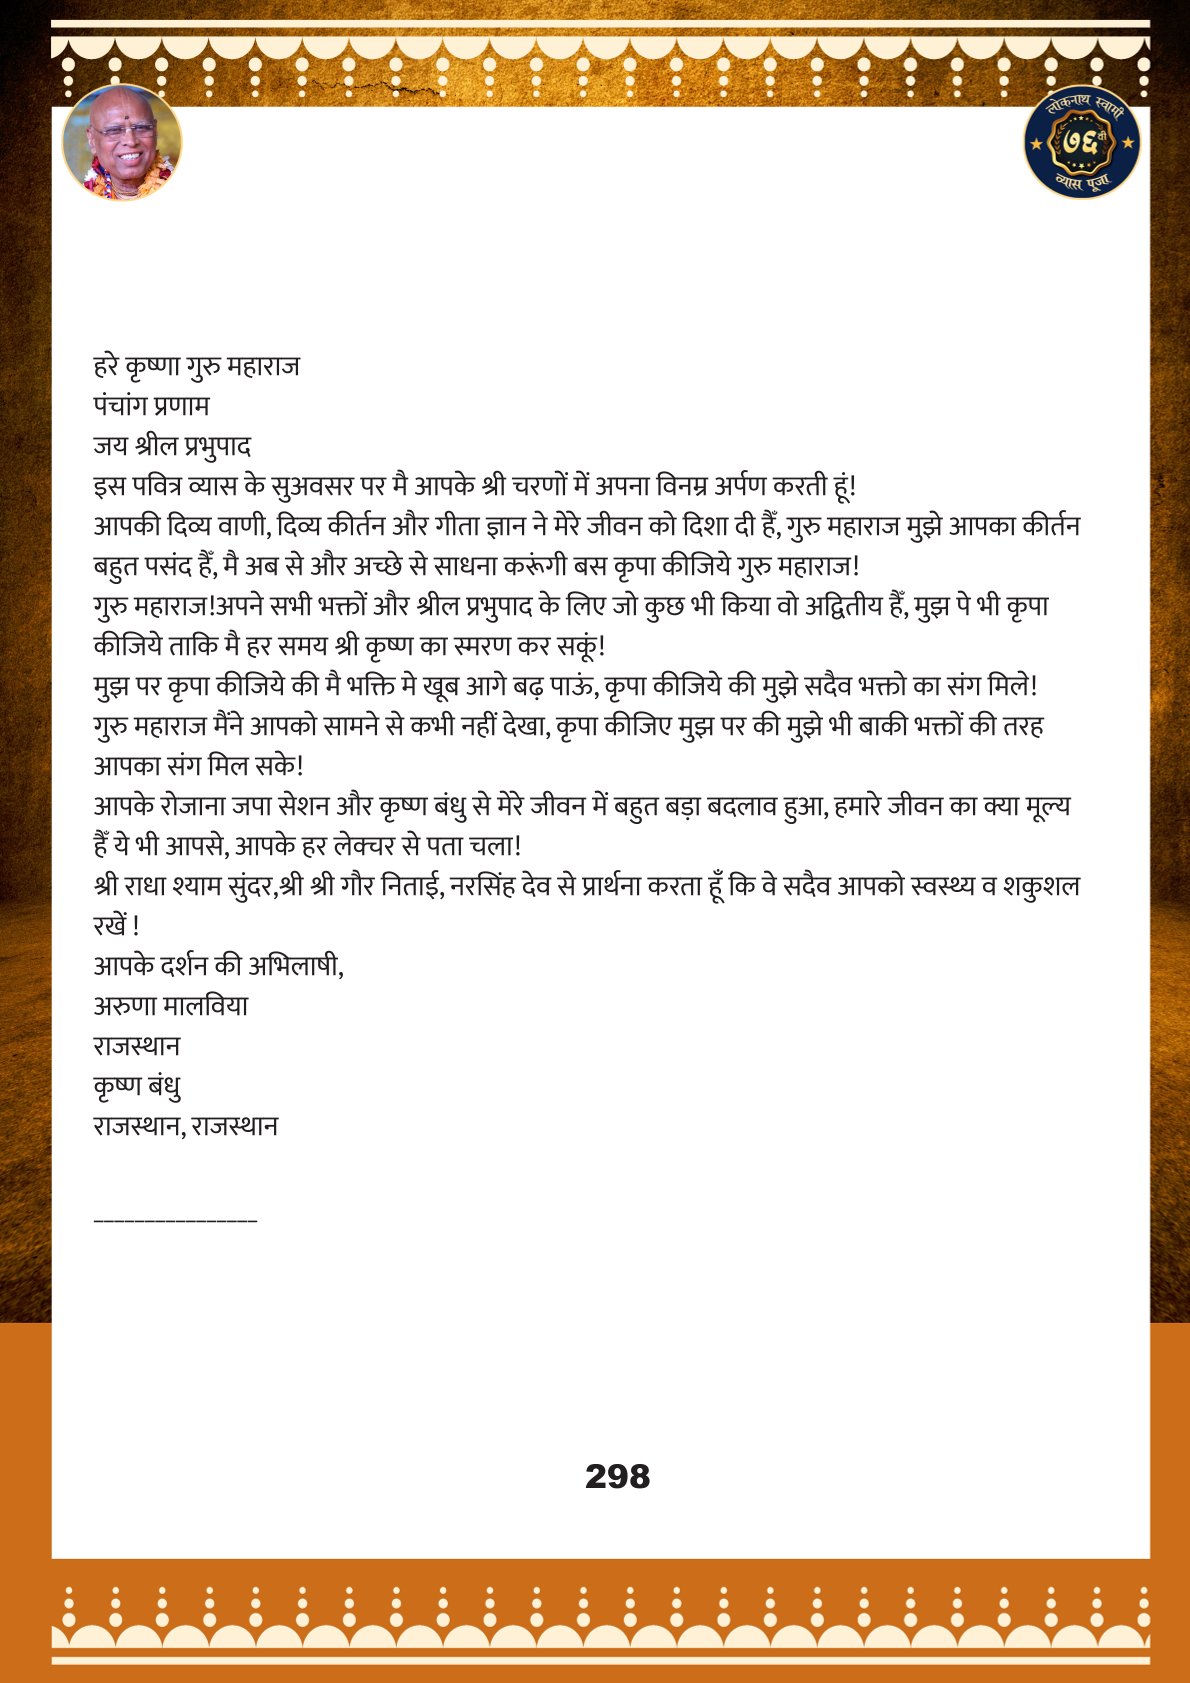 लोकनाथ स्वामी
७६वी
व्यास पूजा
हरे कृष्णा गुरु महाराज
पंचांग प्रणाम
जय श्रील प्रभुपाद
इस पवित्र व्यास के सुअवसर पर मै आपके श्री चरणों में अपना विनम्र अर्पण करती हूं!
आपकी दिव्य वाणी, दिव्य कीर्तन और गीता ज्ञान ने मेरे जीवन को दिशा दी हैँ, गुरु महाराज मुझे आपका कीर्तन
बहुत पसंद हैँ, मै अब से और अच्छे से साधना करूंगी बस कृपा कीजिये गुरु महाराज!
गुरु महाराज!अपने सभी भक्तों और श्रील प्रभुपाद के लिए जो कुछ भी किया वो अद्वितीय हैँ, मुझ पे भी कृपा
कीजिये ताकि मै हर समय श्री कृष्ण का स्मरण कर सकूं!
मुझ पर कृपा कीजिये की मै भक्ति मे खूब आगे बढ़ पाऊं, कृपा कीजिये की मुझे सदैव भक्तो का संग मिले!
गुरु महाराज मैंने आपको सामने से कभी नहीं देखा, कृपा कीजिए मुझ पर की मुझे भी बाकी भक्तों की तरह
आपका संग मिल सके!
आपके रोजाना जपा सेशन और कृष्ण बंधु से मेरे जीवन में बहुत बड़ा बदलाव हुआ, हमारे जीवन का क्या मूल्य
हैँ ये भी आपसे, आपके हर लेक्चर से पता चला!
श्री राधा श्याम सुंदर,श्री श्री गौर निताई, नरसिंह देव से प्रार्थना करता हूँ कि वे सदैव आपको स्वस्थ्य व शकुशल
रखें !
आपके दर्शन की अभिलाषी,
अरुणा मालविया
राजस्थान
कृष्ण बंधु
राजस्थान, राजस्थान
________________
298